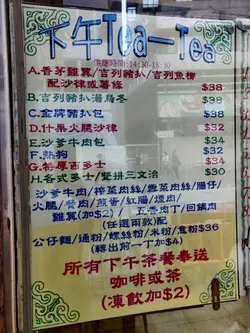 下午Tea一Tea
供應時間:14:30-18:30
A.香茅雞翼/吉列豬扒/吉列魚柳
配沙律或薯條 $38
B.吉列豬扒湯烏冬 $38
C.金牌豬扒包 $38
D.什果火腿沙律 $32
E.沙爹牛肉包 $34
F.熱狗 $32
G.特厚西多士 $34
H.各式多士/雙拼三文治 $30
沙爹牛肉/榨菜肉絲/雪菜肉絲/腸仔/
火腿/餐肉/煎蛋/紅腸/煙肉/
雞翼(加$2)/五香肉丁/回鍋肉
(任選兩款)配
公仔麵/通粉/螺絲粉/米粉/意粉$36
(轉出前一丁加$4)
所有下午茶餐奉送
咖啡或茶
(凍飲加$2)